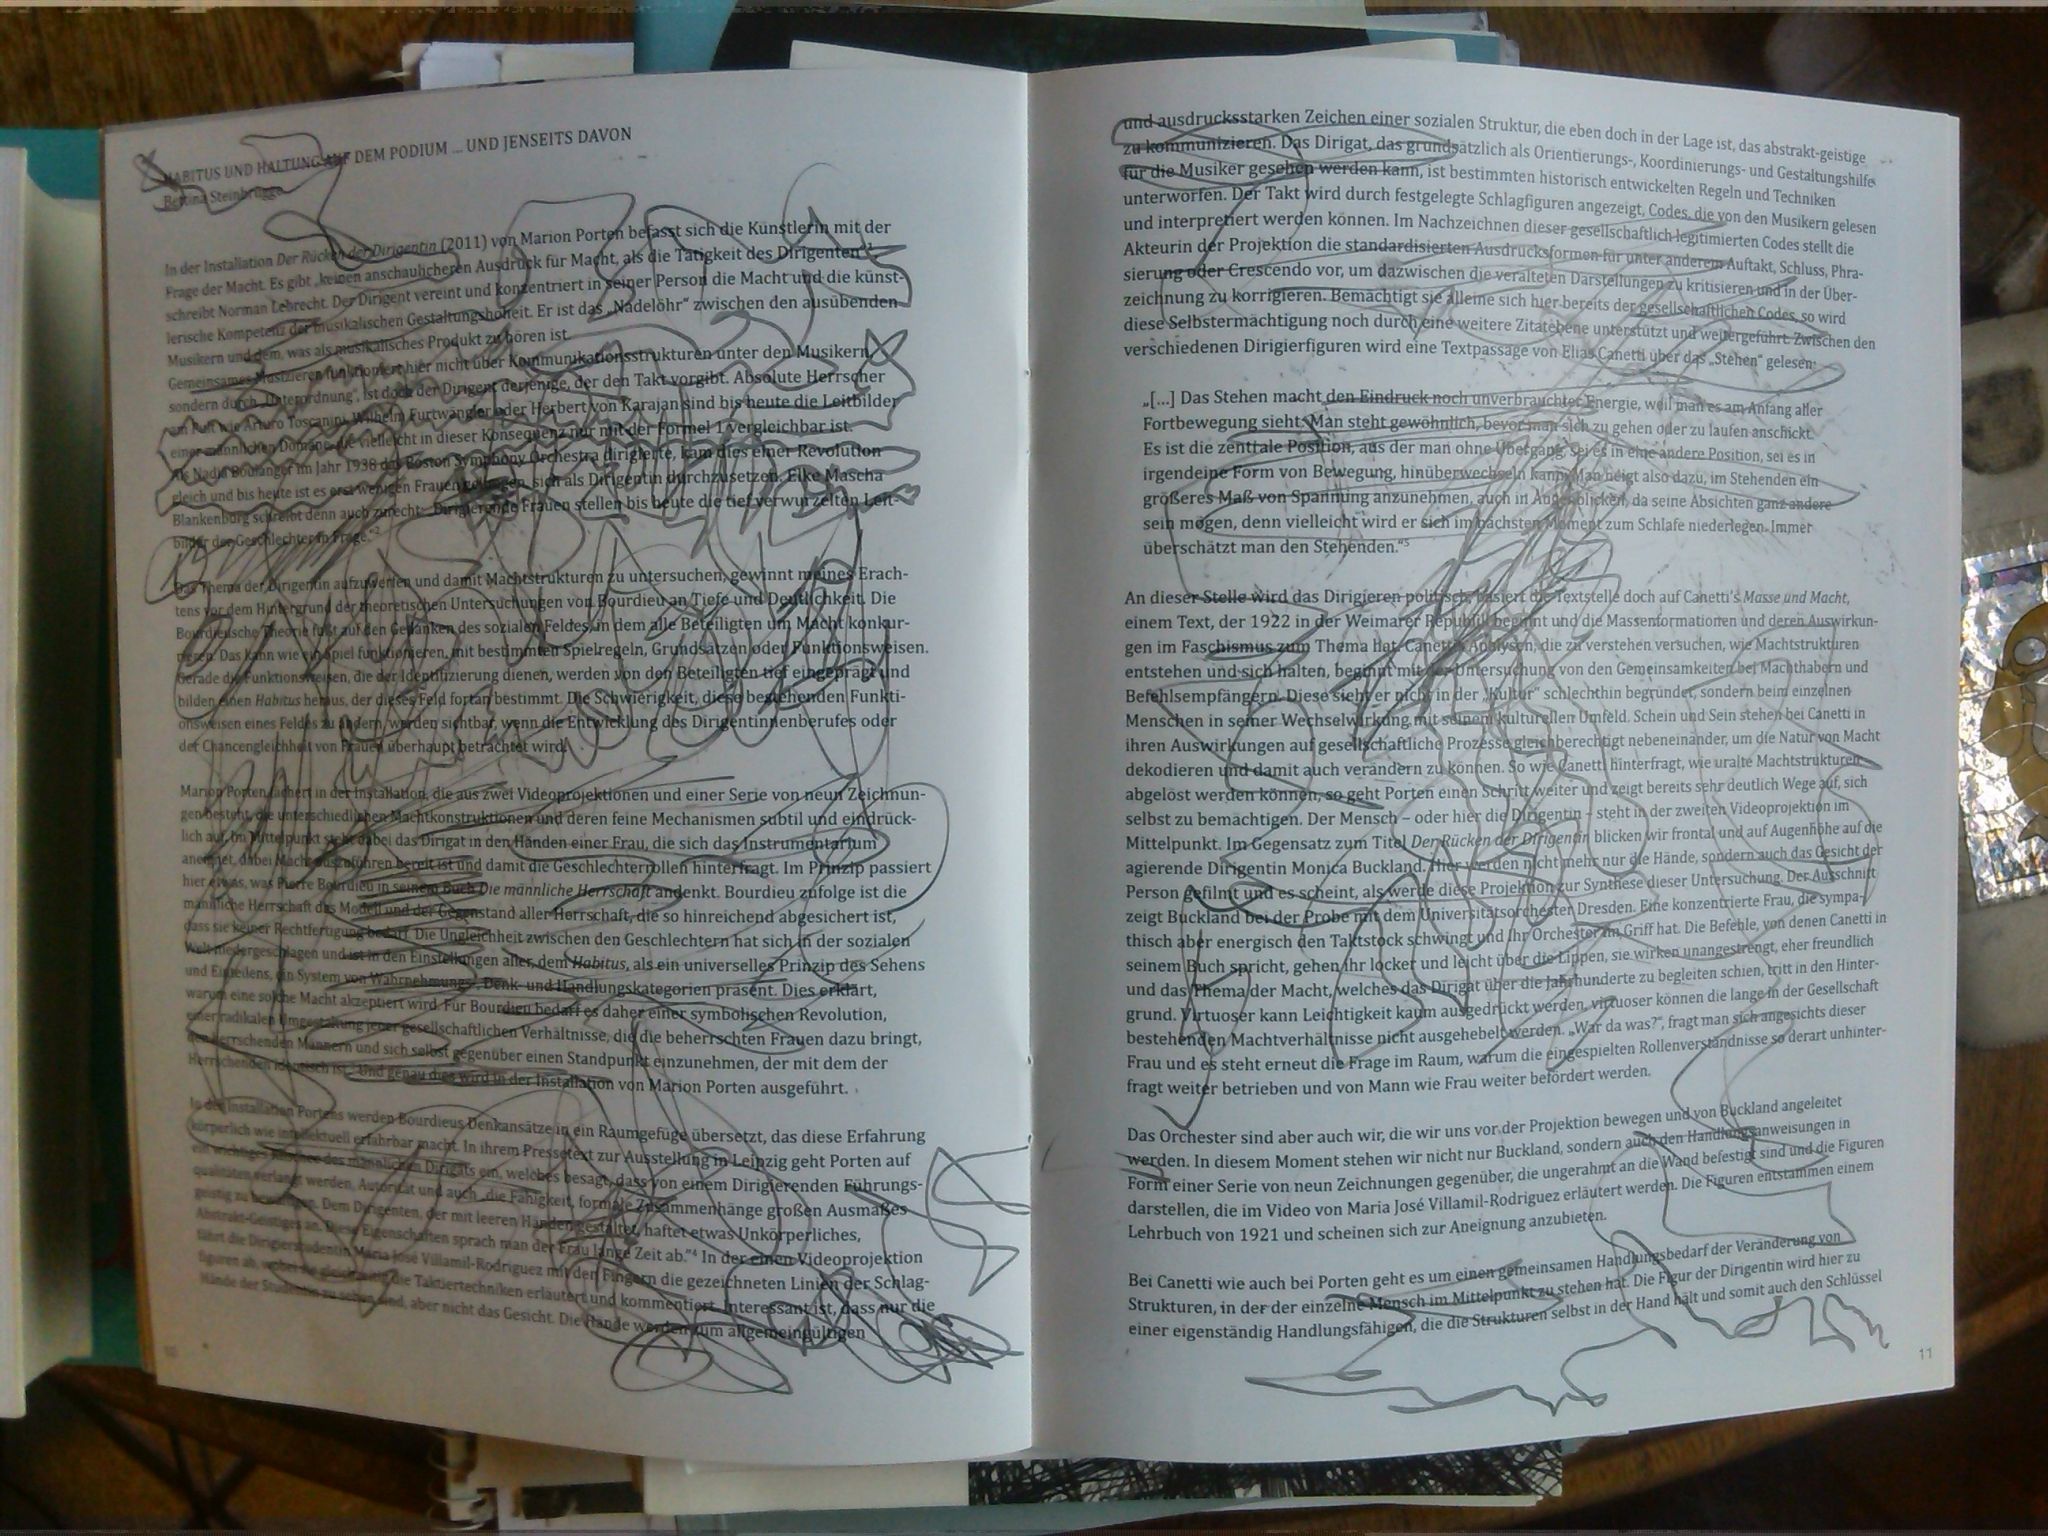 HABITUS UND HALTUNG AUF DEM PODIUM ... UND JENSEITS DAVON
Bettina Steinbrügge
In der Installation Der Rücken der Dirigentin (2011) von Marion Porten befasst sich die Künstlerin mit der
Frage der Macht. Es gibt „keinen anschaulicheren Ausdruck für Macht, als die Tätigkeit des Dirigenten“¹
schreibt Norman Lebrecht. Der Dirigent vereint und konzentriert in seiner Person die Macht und die künst-
lerische Kompetenz der musikalischen Gestaltungshoheit. Er ist das „Nadelöhr“ zwischen den ausübenden
Musikern und dem, was als musikalisches Produkt zu hören ist.
Gemeinsames Musizieren funktioniert hier nicht über Kommunikationsstrukturen unter den Musikern,
sondern durch „Unterordnung“, ist doch der Dirigent derjenige, der den Takt vorgibt. Absolute Herrscher
am Pult wie Arturo Toscanini, Wilhelm Furtwängler oder Herbert von Karajan sind bis heute die Leitbilder
einer männlichen Domäne, die vielleicht in dieser Konsequenz nur mit der Formel 1 vergleichbar ist.
Als Nadia Boulanger im Jahr 1938 das Boston Symphony Orchestra dirigierte, kam dies einer Revolution
gleich und bis heute ist es erst wenigen Frauen gelungen, sich als Dirigentin durchzusetzen. Elke Mascha
Blankenburg schreibt denn auch zurecht: „Dirigierende Frauen stellen bis heute die tief verwurzelten Leit-
bilder der Geschlechter in Frage.“²
Das Thema der Dirigentin aufzuwerfen und damit Machtstrukturen zu untersuchen, gewinnt meines Erach-
tens vor dem Hintergrund der theoretischen Untersuchungen von Bourdieu an Tiefe und Deutlichkeit. Die
Bourdieusche Theorie fußt auf den Gedanken des sozialen Feldes, in dem alle Beteiligten um Macht konkur-
rieren. Das kann wie ein Spiel funktionieren, mit bestimmten Spielregeln, Grundsätzen oder Funktionsweisen.
Gerade die Funktionsweisen, die der Identifizierung dienen, werden von den Beteiligten tief eingeprägt und
bilden einen Habitus heraus, der dieses Feld fortan bestimmt. Die Schwierigkeit, diese bestehenden Funkti-
onsweisen eines Feldes zu ändern, werden sichtbar, wenn die Entwicklung des Dirigentinnenberufes oder
der Chancengleichheit von Frauen überhaupt betrachtet wird.
Marion Porten fächert in der Installation, die aus zwei Videoprojektionen und einer Serie von neun Zeichnun-
gen besteht, die unterschiedlichen Machtkonstruktionen und deren feine Mechanismen subtil und eindrück-
lich auf. Im Mittelpunkt steht dabei das Dirigat in den Händen einer Frau, die sich das Instrumentarium
aneignet, dabei Macht auszuführen bereit ist und damit die Geschlechterrollen hinterfragt. Im Prinzip passiert
hier etwas, was Pierre Bourdieu in seinem Buch Die männliche Herrschaft andenkt. Bourdieu zufolge ist die
männliche Herrschaft das Modell und der Gegenstand aller Herrschaft, die so hinreichend abgesichert ist,
dass sie keiner Rechtfertigung bedarf. Die Ungleichheit zwischen den Geschlechtern hat sich in der sozialen
Welt niedergeschlagen und ist in den Einstellungen aller, dem Habitus, als ein universelles Prinzip des Sehens
und Einteilens, ein System von Wahrnehmungs-, Denk- und Handlungskategorien präsent. Dies erklärt,
warum eine solche Macht akzeptiert wird. Für Bourdieu bedarf es daher einer symbolischen Revolution,
einer radikalen Umgestaltung jener gesellschaftlichen Verhältnisse, die die beherrschten Frauen dazu bringt,
den herrschenden Männern und sich selbst gegenüber einen Standpunkt einzunehmen, der mit dem der
Herrschenden identisch ist.³ Und genau dies wird in der Installation von Marion Porten ausgeführt.
In der Installation Portens werden Bourdieus Denkansätze in ein Raumgefüge übersetzt, das diese Erfahrung
körperlich wie intellektuell erfahrbar macht. In ihrem Pressetext zur Ausstellung in Leipzig geht Porten auf
ein wichtiges Klischee des männlichen Dirigats ein, welches besagt, dass von einem Dirigierenden Führungs-
qualitäten verlangt werden, Autorität und auch „die Fähigkeit, formale Zusammenhänge großen Ausmaßes
geistig zu bewältigen. Dem Dirigenten, der mit leeren Händen gestaltet, haftet etwas Unkörperliches,
Abstrakt-Geistiges an. Diese Eigenschaften sprach man der Frau lange Zeit ab.“⁴ In der einen Videoprojektion
fährt die Dirigierstudentin Maria José Villamil-Rodriguez mit den Fingern die gezeichneten Linien der Schlag-
figuren ab, wobei sie gleichzeitig die Taktiertechniken erläutert und kommentiert. Interessant ist, dass nur die
Hände der Studentin zu sehen sind, aber nicht das Gesicht. Die Hände werden zum allgemeingültigen
und ausdrucksstarken Zeichen einer sozialen Struktur, die eben doch in der Lage ist, das abstrakt-geistige
zu kommunizieren. Das Dirigat, das grundsätzlich als Orientierungs-, Koordinierungs- und Gestaltungshilfe
für die Musiker gesehen werden kann, ist bestimmten historisch entwickelten Regeln und Techniken
unterworfen. Der Takt wird durch festgelegte Schlagfiguren angezeigt, Codes, die von den Musikern gelesen
und interpretiert werden können. Im Nachzeichnen dieser gesellschaftlich legitimierten Codes stellt die
Akteurin der Projektion die standardisierten Ausdrucksformen für unter anderem Auftakt, Schluss, Phra-
sierung oder Crescendo vor, um dazwischen die veralteten Darstellungen zu kritisieren und in der Über-
zeichnung zu korrigieren. Bemächtigt sie alleine sich hier bereits der gesellschaftlichen Codes, so wird
diese Selbstermächtigung noch durch eine weitere Zitatebene unterstützt und weitergeführt. Zwischen den
verschiedenen Dirigierfiguren wird eine Textpassage von Elias Canetti über das „Stehen“ gelesen:
„[...] Das Stehen macht den Eindruck noch unverbrauchter Energie, weil man es am Anfang aller
Fortbewegung sieht. Man steht gewöhnlich, bevor man sich zu gehen oder zu laufen anschickt.
Es ist die zentrale Position, aus der man ohne Übergang, sei es in eine andere Position, sei es in
irgendeine Form von Bewegung, hinüberwechseln kann. Man neigt also dazu, im Stehenden ein
größeres Maß von Spannung anzunehmen, auch in Augenblicken, da seine Absichten ganz andere
sein mögen, denn vielleicht wird er sich im nächsten Moment zum Schlafe niederlegen. Immer
überschätzt man den Stehenden.“⁵
An dieser Stelle wird das Dirigieren politisch, basiert die Textstelle doch auf Canetti's Masse und Macht,
einem Text, der 1922 in der Weimarer Republik beginnt und die Massenformationen und deren Auswirkun-
gen im Faschismus zum Thema hat. Canettis Analysen, die zu verstehen versuchen, wie Machtstrukturen
entstehen und sich halten, beginnt mit der Untersuchung von den Gemeinsamkeiten bei Machthabern und
Befehlsempfängern. Diese sieht er nicht in der „Kultur“ schlechthin begründet, sondern beim einzelnen
Menschen in seiner Wechselwirkung mit seinem kulturellen Umfeld. Schein und Sein stehen bei Canetti in
ihren Auswirkungen auf gesellschaftliche Prozesse gleichberechtigt nebeneinander, um die Natur von Macht
dekodieren und damit auch verändern zu können. So wie Canetti hinterfragt, wie uralte Machtstrukturen
abgelöst werden können, so geht Porten einen Schritt weiter und zeigt bereits sehr deutlich Wege auf, sich
selbst zu bemächtigen. Der Mensch – oder hier die Dirigentin – steht in der zweiten Videoprojektion im
Mittelpunkt. Im Gegensatz zum Titel Der Rücken der Dirigentin blicken wir frontal und auf Augenhöhe auf die
agierende Dirigentin Monica Buckland. Hier werden nicht mehr nur die Hände, sondern auch das Gesicht der
Person gefilmt und es scheint, als werde diese Projektion zur Synthese dieser Untersuchung. Der Ausschnitt
zeigt Buckland bei der Probe mit dem Universitätsorchester Dresden. Eine konzentrierte Frau, die sympa-
thisch aber energisch den Taktstock schwingt und ihr Orchester im Griff hat. Die Befehle, von denen Canetti in
seinem Buch spricht, gehen ihr locker und leicht über die Lippen, sie wirken unangestrengt, eher freundlich
und das Thema der Macht, welches das Dirigat über die Jahrhunderte zu begleiten schien, tritt in den Hinter-
grund. Virtuoser kann Leichtigkeit kaum ausgedrückt werden, virtuoser können die lange in der Gesellschaft
bestehenden Machtverhältnisse nicht ausgehebelt werden. „War da was?“, fragt man sich angesichts dieser
Frau und es steht erneut die Frage im Raum, warum die eingespielten Rollenverständnisse so derart unhinter-
fragt weiter betrieben und von Mann wie Frau weiter befördert werden.
Das Orchester sind aber auch wir, die wir uns vor der Projektion bewegen und von Buckland angeleitet
werden. In diesem Moment stehen wir nicht nur Buckland, sondern auch den Handlungsanweisungen in
Form einer Serie von neun Zeichnungen gegenüber, die ungerahmt an die Wand befestigt sind und die Figuren
darstellen, die im Video von Maria José Villamil-Rodriguez erläutert werden. Die Figuren entstammen einem
Lehrbuch von 1921 und scheinen sich zur Aneignung anzubieten.
Bei Canetti wie auch bei Porten geht es um einen gemeinsamen Handlungsbedarf der Veränderung von
Strukturen, in der der einzelne Mensch im Mittelpunkt zu stehen hat. Die Figur der Dirigentin wird hier zu
einer eigenständig Handlungsfähigen, die die Strukturen selbst in der Hand hält und somit auch den Schlüssel
11